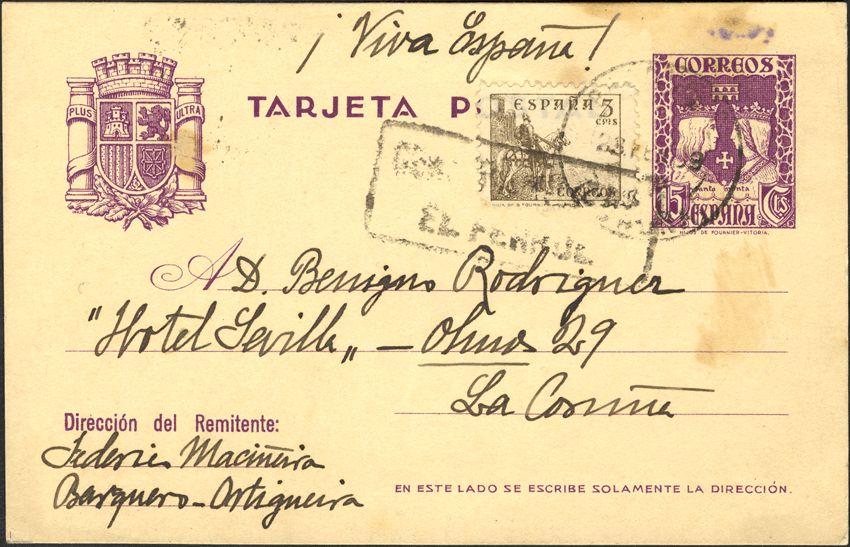 ¡Viva España!
PLUS ULTRA
TARJETA
ESPAÑA 5
CTS
CORREOS
CORREOS
tanto monta
15 ESPAÑA Cts
HIJOS DE FOURNIER-VITORIA.
EL FERROL
A D. Benigno Rodriguez
"Hotel Sevilla" - Olmos 29
La Coruña
Dirección del Remitente:
Federico Maciñeira
Barquero - Ortigueira
EN ESTE LADO SE ESCRIBE SOLAMENTE LA DIRECCIÓN.